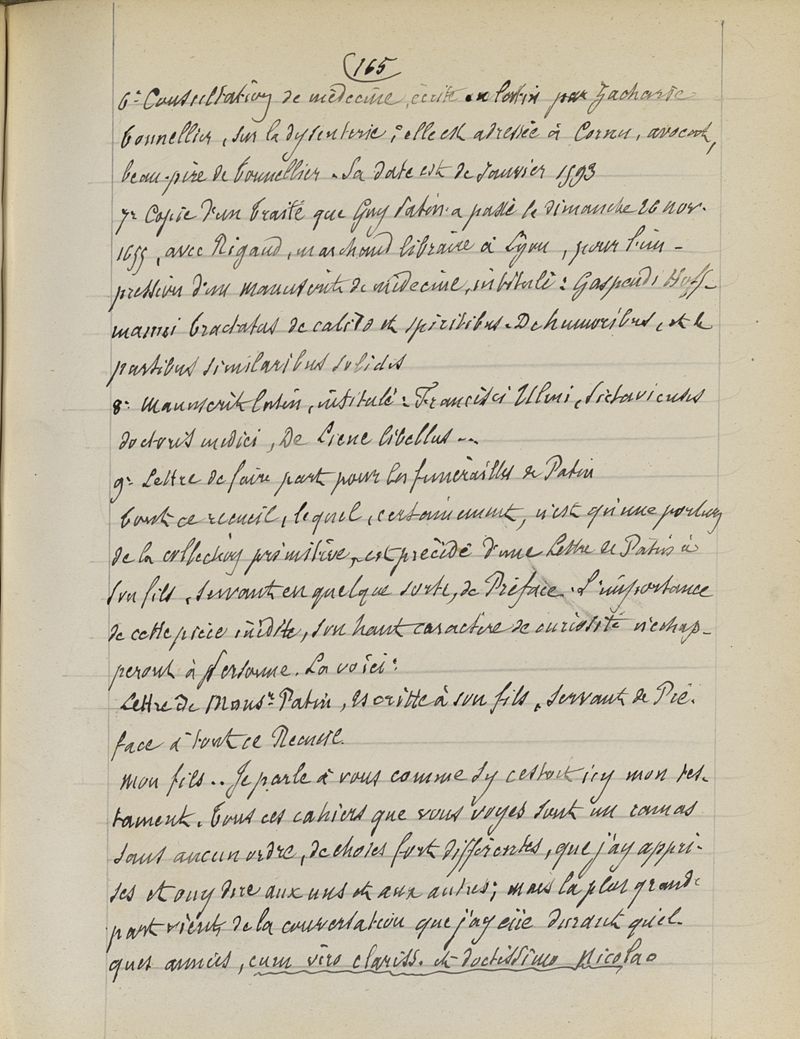 165
6° Consultation de médecine, écrite en latin par Zacharie
Tonnellier, sur la dysenterie ; elle est adressée à Cornu, avocat,
beau-père de Tonnellier. Sa date est de Janvier 1593
7° Copie d'un traité que Guy Patin a passé le dimanche 26 nov.
1655, avec Rigaud, marchand libraire à Lyon, pour l'im-
pression d'un manuscrit de médecine, intitulé : Gaspardi Hoff-
manni tractatus de calido et spiritibus. De humoribus, et de
partibus similaribus solidis
8° Manuscrit latin, intitulé : Francisci Ulmi, Pictaviensis
doctoris medici, De Liene libellus ..
9° Lettre de faire part pour les funérailles de Patin
Tout ce recueil, lequel, certainement, n'est qu'une portion
de la collection primitive, est précédé d'une Lettre de Patin à
son fils, servant en quelque sorte, de Préface. L'importance
de cette pièce inédite, son haut caractère de curiosité n'échap-
peront à personne. La voici :
Lettre de Mons.r Patin, escritte à son fils, servant de Pré-
face à tout ce Recueil.
Mon fils .. Je parle à vous comme sy cestoit icy mon tes-
tament. Tous ces cahiers que vous voyes sont un ramas
sans aucun ordre, de choses fort différentes, que j'ay appri-
ses et ouy dire aux uns et aux autres ; mais la plus grande
part vient de la conversation que j'ay eüe durant quel-
ques années, cum viro clariss. et doctissimo Nicolao